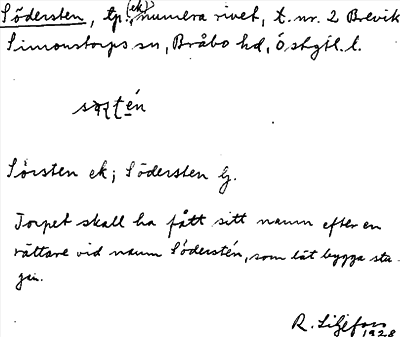 Södersten, tp. (ek), numera rivet, t. nr. 2 Brevik
Simonstorps sn, Bråbo hd, Östgtl. l.
Sörsten ek; Södersten Lj.
Torpet skall ha fått sitt namn efter en
rättare vid namn Söderstén, som lät bygga stu-
gan.
R. Liljefors
1928